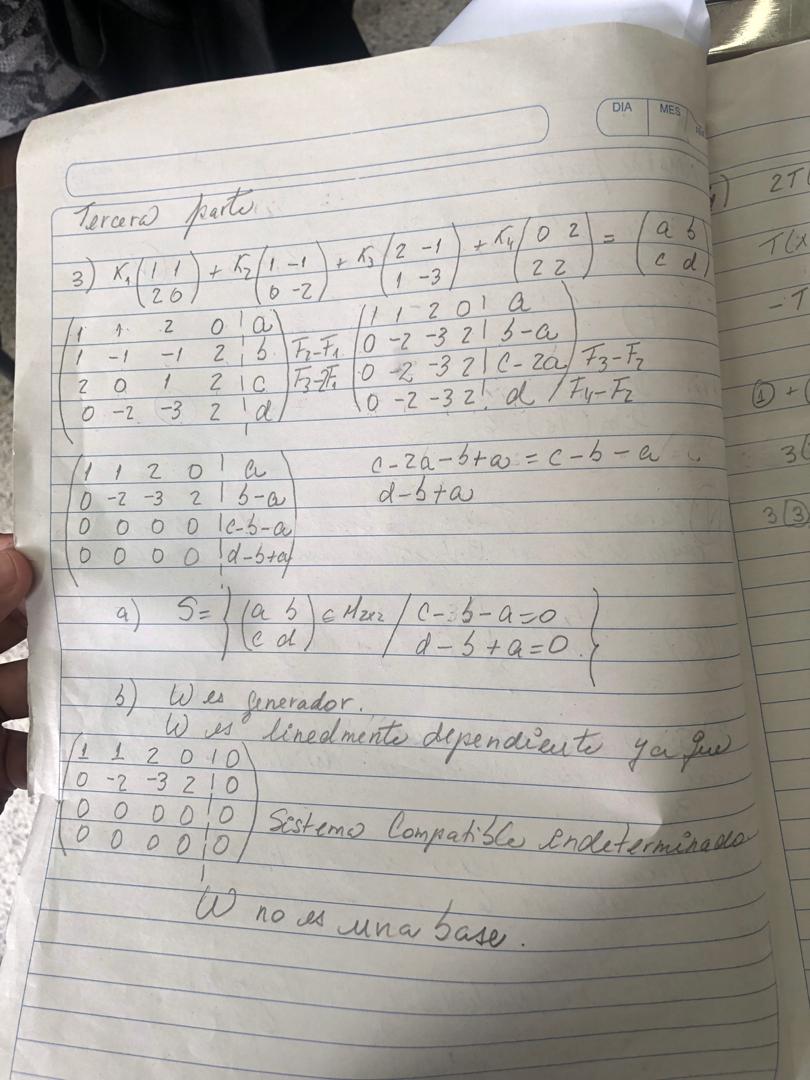 DIA MES
Tercera parte
3) K₁(1 1 / 2 0) + K₂(1 -1 / 0 -2) + K₃(2 -1 / 1 -3) + K₄(0 2 / 2 2) = (a b / c d)
1 1 2 0 | a
1 -1 -1 2 | b F₂-F₁
2 0 1 2 | c F₃-2F₁
0 -2 -3 2 | d
1 1 2 0 | a
0 -2 -3 2 | b-a
0 -2 -3 2 | c-2a F₃-F₂
0 -2 -3 2 | d F₄-F₂
1 1 2 0 | a
0 -2 -3 2 | b-a
0 0 0 0 | c-b-a
0 0 0 0 | d-b+a
c-2a-b+a = c-b-a
d-b+a
a) S= {(a b / c d) ∈ M2x2 / c-b-a=0
d-b+a=0.}
b) W es generador.
W es linealmente dependiente ya que
1 1 2 0 | 0
0 -2 -3 2 | 0
0 0 0 0 | 0
0 0 0 0 | 0
Sistema Compatible indeterminado
W no es una base.
2T(
T(x
-T
① + (
3(
3(3)